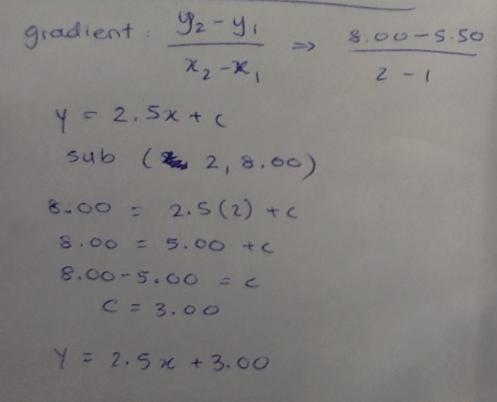 gradient: y₂-y₁/x₂-x₁ ⇒ 8.00-5.50/2-1
y = 2.5x + c
sub (2, 8.00)
8.00 = 2.5(2) + c
8.00 = 5.00 + c
8.00-5.00 = c
c = 3.00
y = 2.5x + 3.00